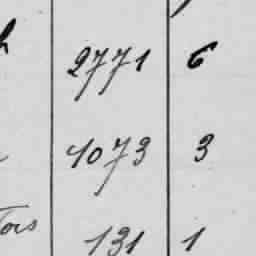 h 2771 6
1073 3
Tois 131 1